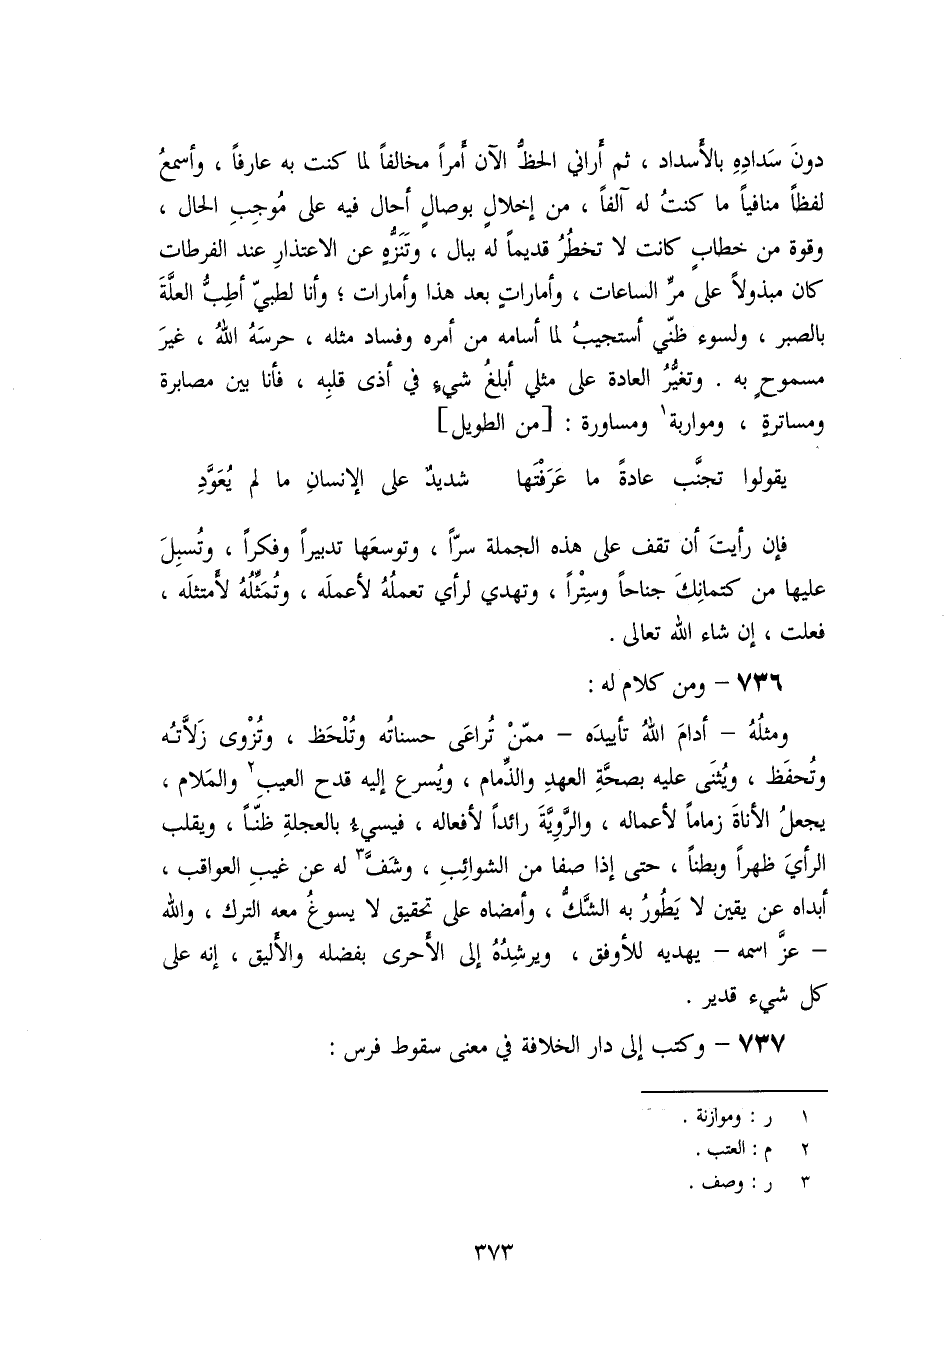 دونَ سَدادِهِ بالأَسداد ، ثم أَراني الحظُّ الآن أَمراً مخالفاً لما كنت به عارفاً ، وأسمعُ
لفظاً منافياً ما كنتُ له آلفاً ، من إخلالٍ بوصالٍ أحال فيه على مُوجِبِ الحال ،
وقوة من خطابٍ كانت لا تخطُرُ قديماً له ببال ، وتَنَزُّهٍ عن الاعتذارِ عند الفرطات
كان مبذولاً على مرِّ الساعات ، وأماراتٍ بعد هذا وأمارات ؛ وأنا لطبيّ أطِبُّ العلَّةَ
بالصبر ، ولسوء ظنّي أستجيبُ لما أسامه من أمره وفساد مثله ، حرسَهُ اللهُ ، غيرَ
مسموحٍ به . وتغيُّرُ العادة على مثلي أبلغُ شيءٍ في أذى قلبِه ، فأنا بين مصابرة
ومساترةٍ ، ومواربة١ ومساورة : [من الطويل]
يقولوا تجنَّب عادةً ما عَرَفْتَها شديدٌ على الإنسانِ ما لم يُعَوَّدِ
فإن رأيتَ أن تقف على هذه الجملة سرّاً ، وتوسعَها تدبيراً وفكراً ، وتُسبِلَ
عليها من كتمانِكَ جناحاً وسِتْراً ، وتهدي لرأي تعملُهُ لأعملَه ، وتُمَثِّلُهُ لأَمتثلَه ،
فعلت ، إن شاء الله تعالى .
٧٣٦ – ومن كلام له :
ومثلُهُ – أدامَ اللهُ تأييدَه – ممّنْ تُراعَى حسناتُه وتُلْحَظ ، وتُزْوى زَلاَّتُه
وتُحفَظ ، ويُثنَى عليه بصحَّةِ العهدِ والذِّمام ، ويُسرع إليه قدح العيب٢ والمَلام ،
يجعلُ الأناةَ زماماً لأعماله ، والرَّوِيَّةَ رائداً لأفعاله ، فيسيءُ بالعجلةِ ظنّاً ، ويقلب
الرأيَ ظهراً وبطناً ، حتى إذا صفا من الشوائِبِ ، وشَفَّ٣ له عن غيبِ العواقب ،
أبداه عن يقين لا يَطُورُ به الشَّكُّ ، وأمضاه على تحقيق لا يسوغُ معه الترك ، والله
– عزَّ اسمه – يهديه للأوفق ، ويرشِدُهُ إلى الأَحرى بفضله والأَليق ، إنه على
كل شيء قدير .
٧٣٧ – وكتب إلى دار الخلافة في معنى سقوط فرس :
١ ر : وموازنة .
٢ م : العتب .
٣ ر : وصف .
٣٧٣